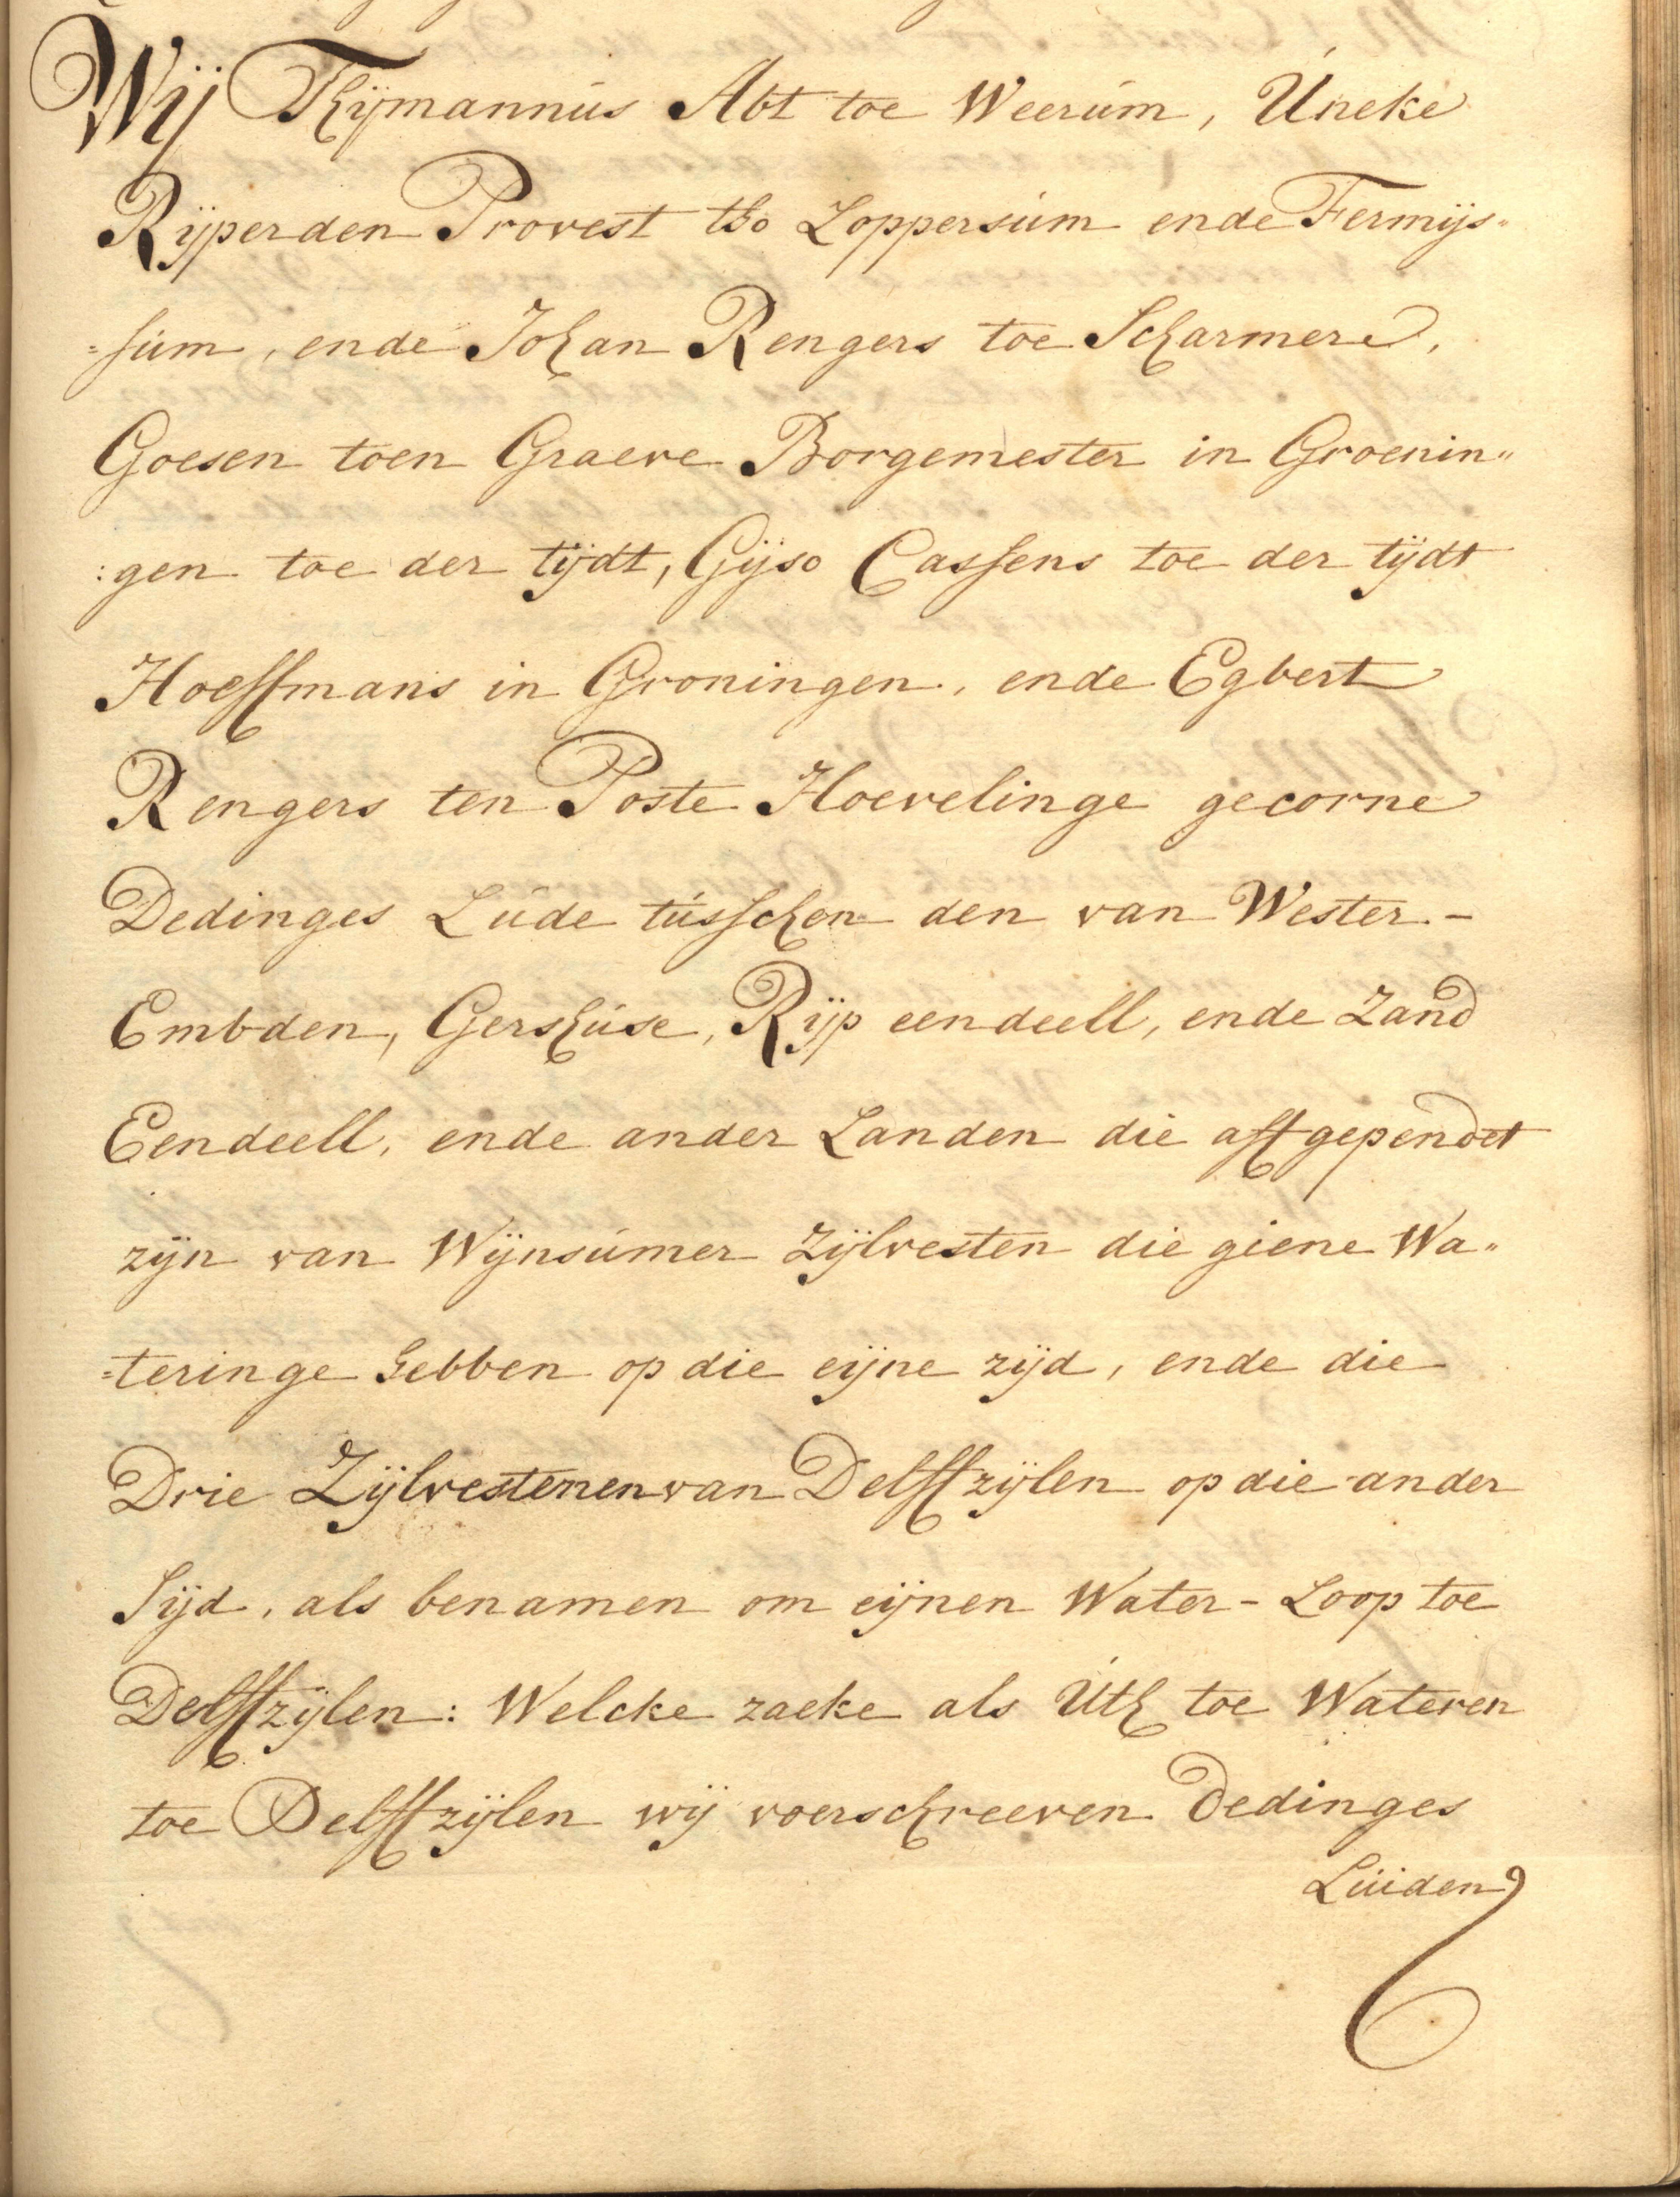 Wij Thijmannús Abt toe Weerúm, Úneke
Rijperden Provest tho Loppersúm ende Fermijs„
=súm, ende Johan Rengers toe Scharmere,
Goesen toen Graeve Borgemester in Groenin„
:gen toe der tijdt, Gijso Cassens toe der tijdt
Hoeffmans in Groningen, ende Egbert
Rengers ten Poste Hoevelinge gecorne
Dedinges Lúde tússchen den van Wester-
Embden, Gershúse, Rijp eendeell, ende Zand
Eendeell, ende ander Landen die affgependet
zijn van Wijnsúmer Zijlvesten die giene Wa„
=teringe hebben op die eijne zijd, ende die
Drie Zijlvestenen van Delffzijlen op die ander
Sijd, als benamen om eijnen Water-Loop toe
Delffzijlen: Welcke zaeke als Úth toe Wateren
toe Delffzijlen wij voerschreeven Dedinges
Lúiden